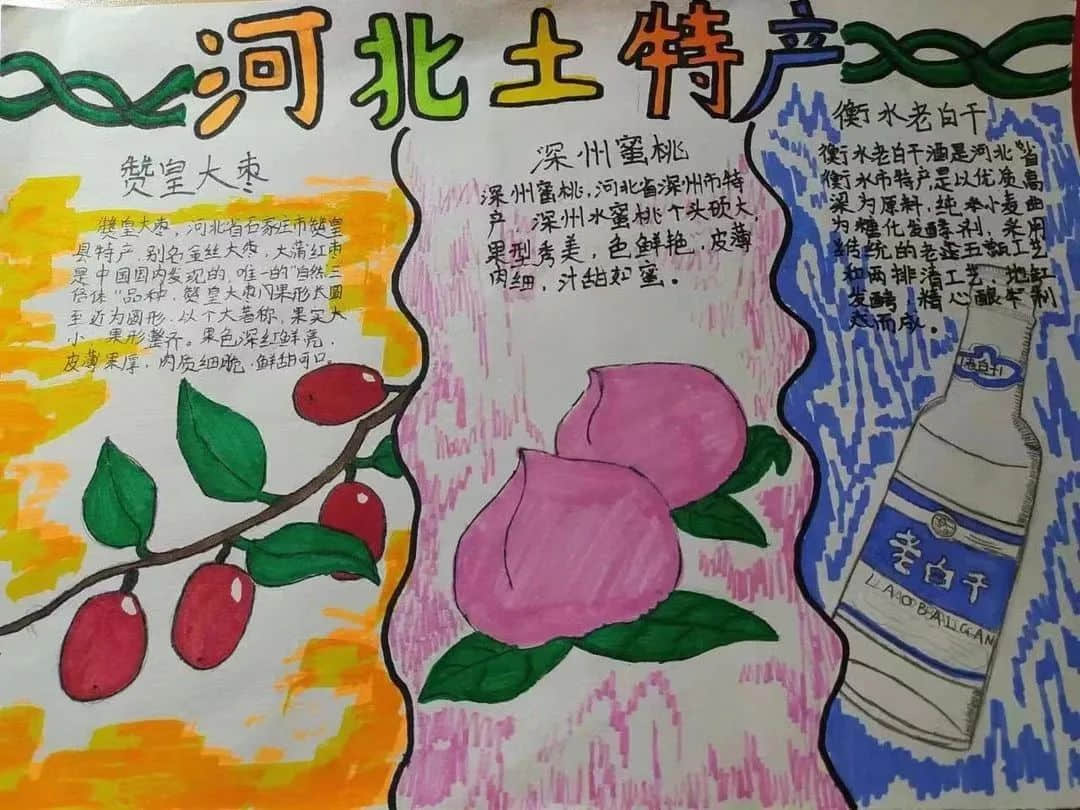 河北土特产
赞皇大枣
赞皇大枣，河北省石家庄市赞皇
县特产，别名金丝大枣，大蒲红枣
是中国国内发现的，唯一的"自然三
倍体"品种，赞皇大枣果形长圆
至近为圆形，以个大著称，果实大
小，果形整齐。果色深红鲜亮，
皮薄果厚，肉质细脆，鲜甜可口。
深州蜜桃
深州蜜桃，河北省深州市特
产，深州水蜜桃个头硕大，
果型秀美，色鲜艳，皮薄
肉细，汁甜如蜜。
衡水老白干
衡水老白干酒是河北省
衡水市特产是以优质高
梁为原料，纯小麦曲
为糖化发酵剂，采用
传统的老五甑工艺
和两排清工艺，地缸
发酵，精心酿制
而成。
老白干
老白干
LAOBAIGAN